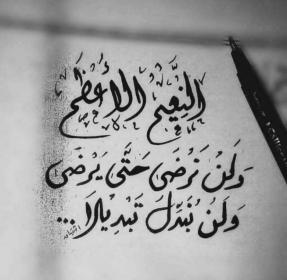 النَّعِيمُ الأَعْظَمُ
وَلَنْ نَرْضَى حَتَّى يَرْضَى
وَلَنْ نُبَدِّلَ تَبْدِيلَا...